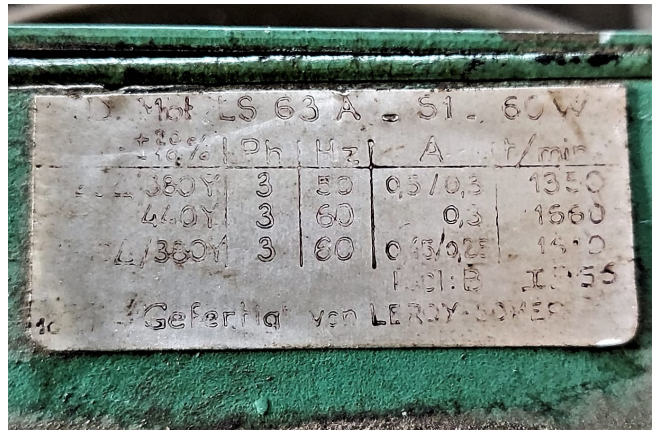 D. Mot LS 63 A - S1 - 60W
Ph Hz A t/min
380Y 3 50 0,5/0,3 1350
440Y 3 60 0,3 1660
/380Y 3 60
I.cl: B IP55
Gefertigt von LEROY-SOMER